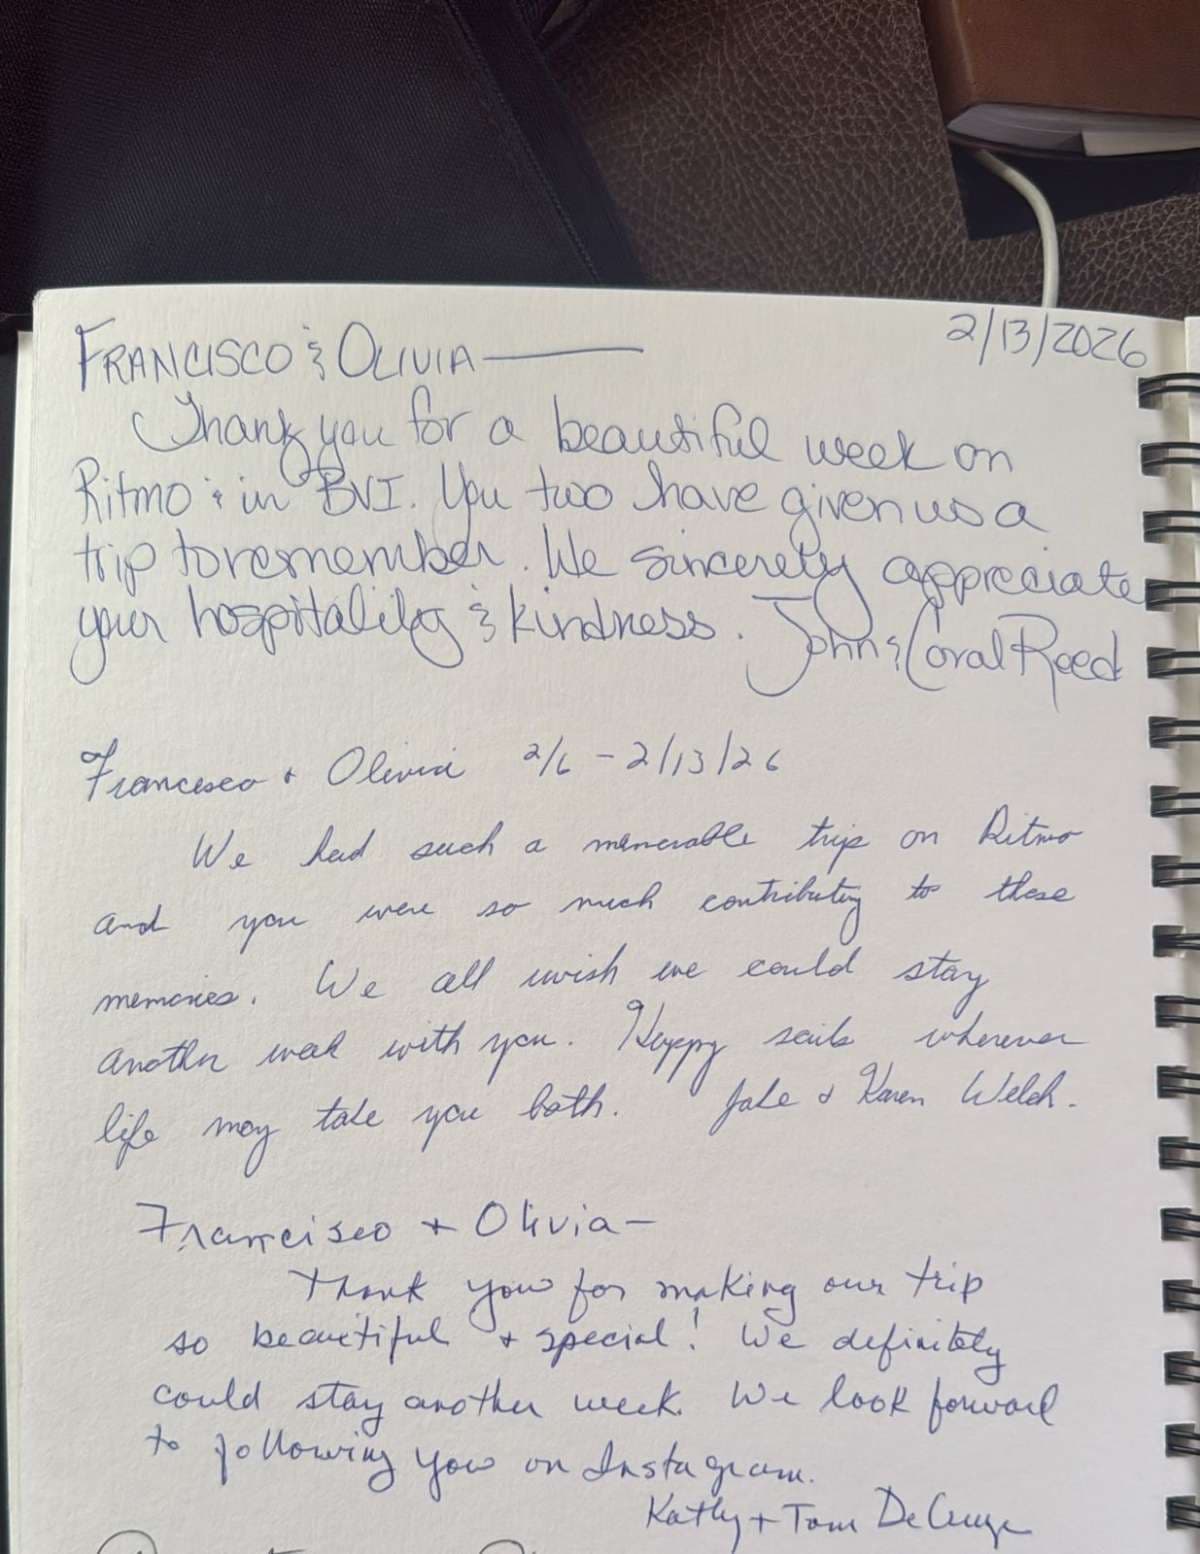 FRANCISCO & OLIVIA —
2/13/2026
Thank you for a beautiful week on
Ritmo & in BVI. You two have given us a
trip to remember. We sincerely appreciate
your hospitality & kindness. John & Coral Reed
Francesco + Olivia 2/6 - 2/13/26
We had such a memorable trip on Ritmo
and you were so much contributing to these
memories. We all wish we could stay
another week with you. Happy sails wherever
life may take you both. Jake & Karen Welch.
Francisco + Olivia -
Thank you for making our trip
so beautiful + special! We definitely
could stay another week. We look forward
to following you on Instagram.
Kathy + Tom